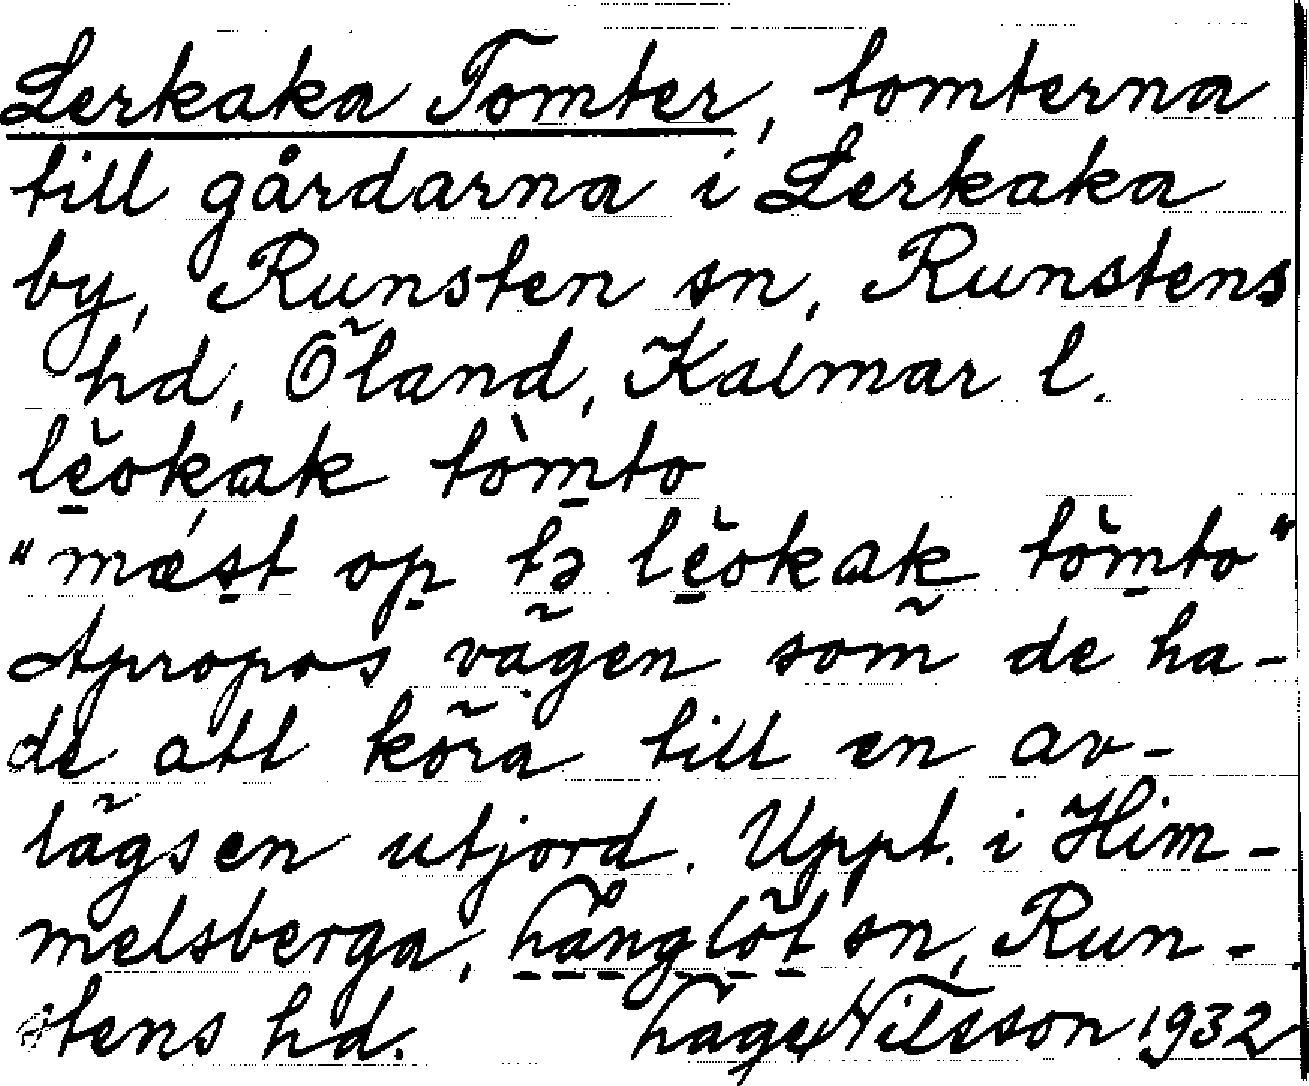 Lerkaka Tomter, tomterna
till gårdarna i Lerkaka
by, Runsten sn, Runstens
hd, Öland, Kalmar l.
"mest op tə
Apropos vägen som de ha-
de att köra till en av-
lägsen utjord. Uppt. i Him-
melsberga, Långlöt sn, Run-
stens hd. Lage Nilsson 1932